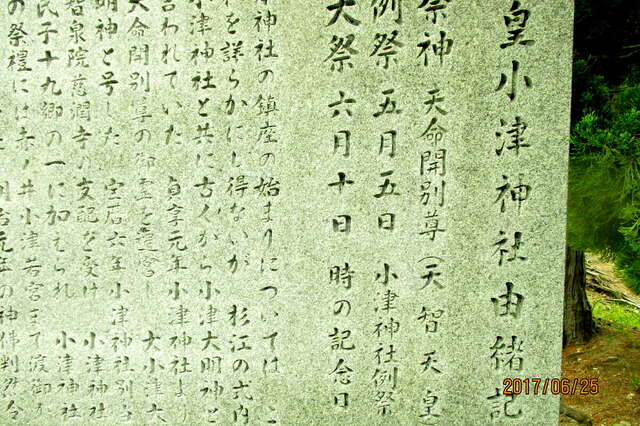 皇小津神社由緒記
祭神 天命開別尊(天智天皇
例祭 五月五日 小津神社例祭
大祭 六月十日 時の記念日
神社の鎮座の始まりについては こ
を詳らかにし得ないが 杉江の式内
小津神社と共に古くから小津大明神と
言われていた 貞享元年小津神社より
天命開別尊の御霊を遷宮し 大小津大
明神と号した 宝暦六年小津神社別当
智泉院慈潤寺の支配を受け 小津神社
氏子十九郷の一に加えられ 小津神社
の祭礼には赤ノ井小津若宮まで渡御
2017/06/25